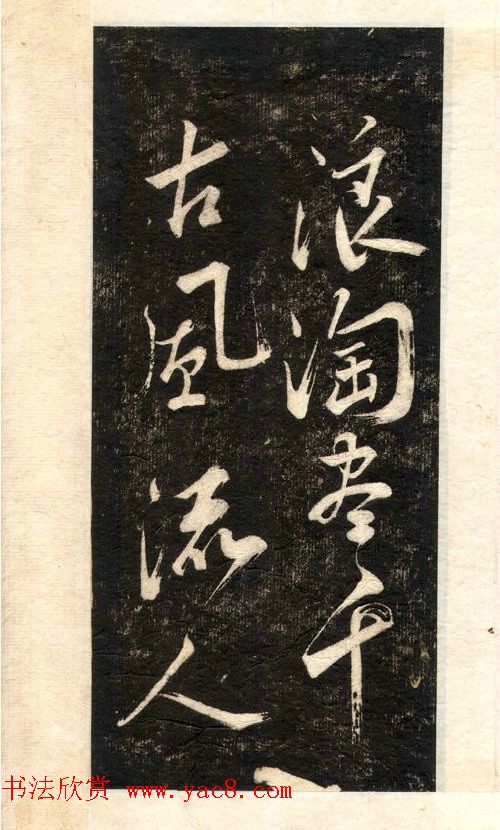 浪淘尽千
古風流人
书法欣赏 www.yac8.com